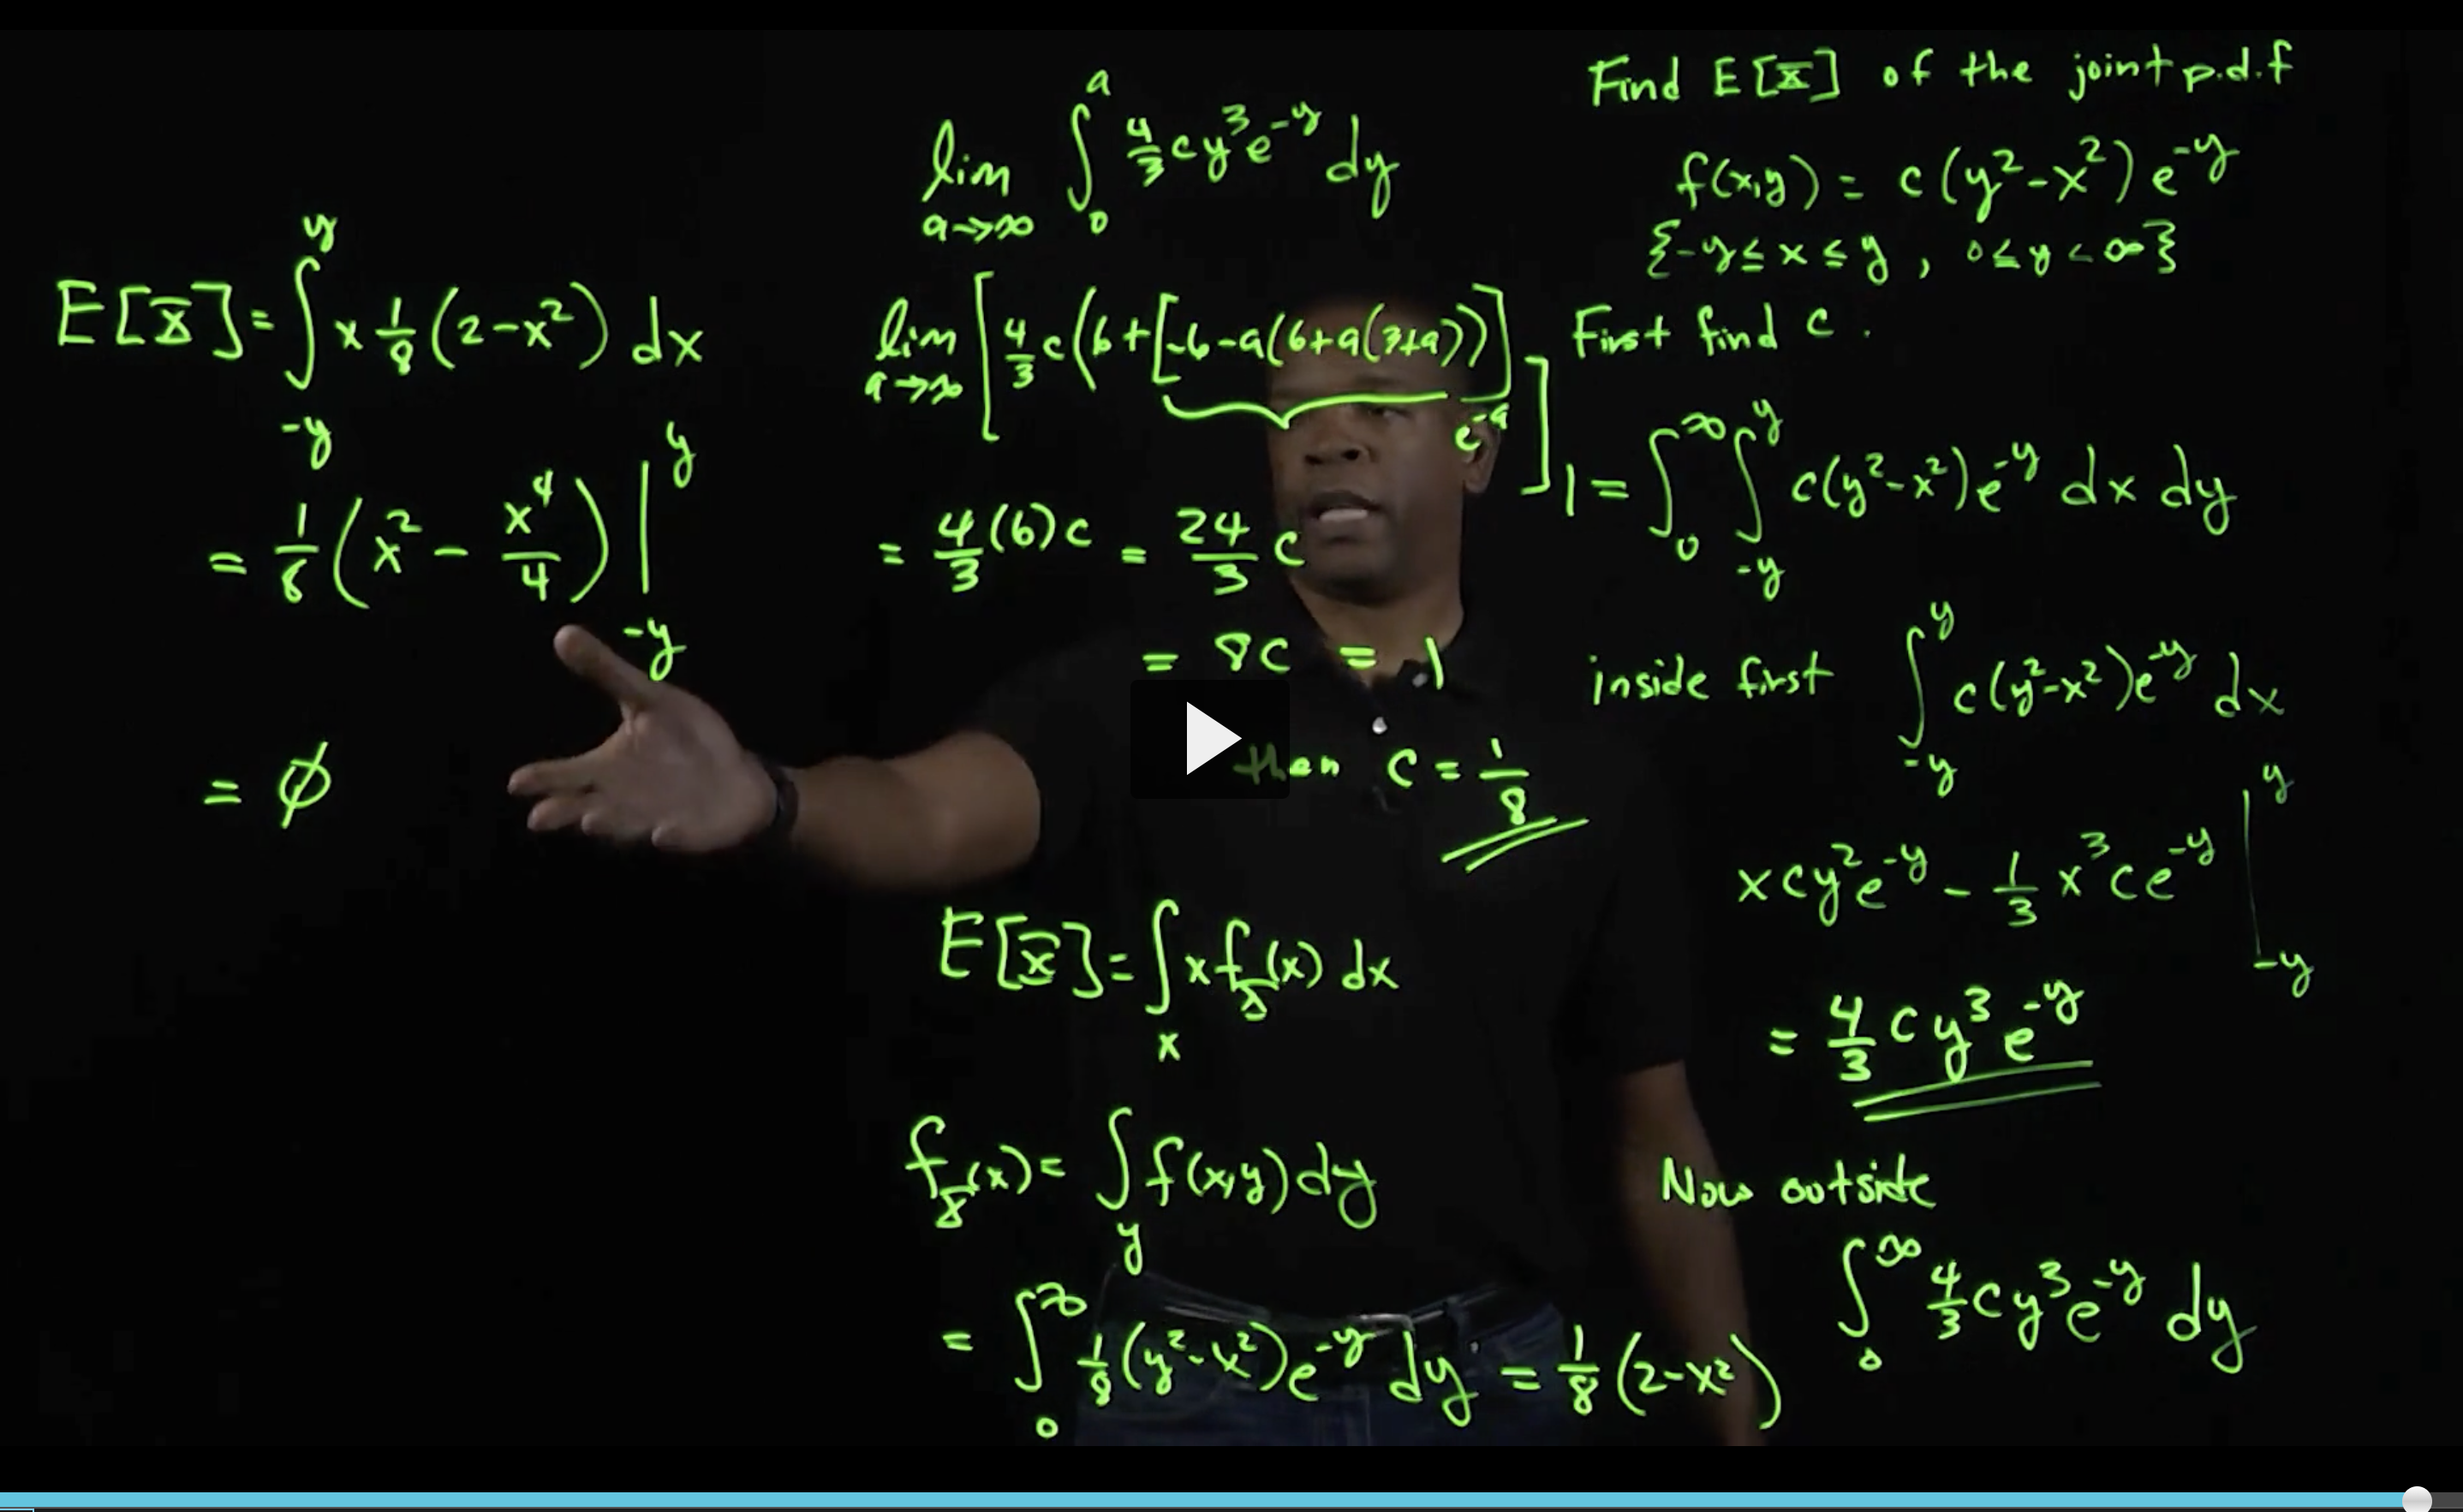 Find E[X̄] of the joint p.d.f
f(x,y) = c(y²-x²)e^{-y}
{-y ≤ x ≤ y, 0 ≤ y < ∞}
First find c.
1 = ∫_0^∞ ∫_{-y}^{y} c(y²-x²)e^{-y} dx dy
inside first ∫_{-y}^{y} c(y²-x²)e^{-y} dx
xcy²e^{-y} - 1/3 x³ce^{-y} |_{-y}^{y}
= 4/3 cy³e^{-y}
Now outside
∫_0^∞ 4/3 cy³e^{-y} dy
lim_{a→∞} ∫_0^a 4/3 cy³e^{-y} dy
lim_{a→∞} [4/3 c(6+[-6-a(6+a(3+a))] e^{-a}]
= 4/3 (6)c = 24/3 c
= 8c = 1
then c = 1/8
E[X̄] = ∫_x x f_X̄(x) dx
f_X̄(x) = ∫_y f(x,y) dy
= ∫_0^∞ 1/8 (y²-x²)e^{-y} dy = 1/8 (2-x²)
E[X̄] = ∫_{-y}^{y} x 1/8 (2-x²) dx
= 1/8 (x² - x⁴/4) |_{-y}^{y}
= ∅